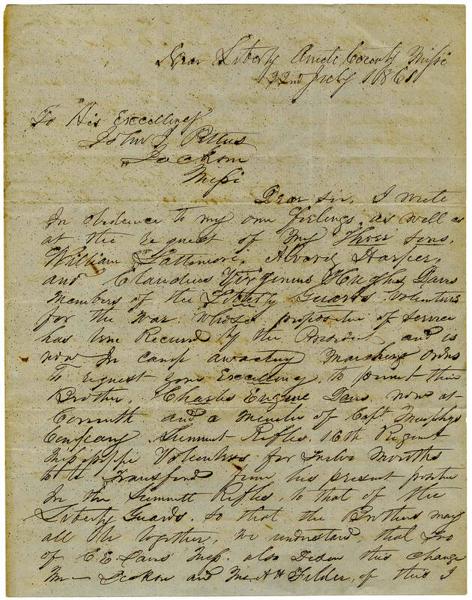 Near Liberty Amite County Missi
22nd July 1861
To His Excellency
John J. Pettus
Jackson
Missi
Dear Sir, I write
In obedience to my own feelings, as well as
at the request of My Three sons,
William Lattimore, Alvord Harper,
and Claudius Virginius Hughes Davis
Members of the Liberty Guards Volunteers
for the war whose proposition of service
has been Received by the President and is
now In camp awaiting Marching orders
To request your Excellency, to permit their
Brother, Charles Eugene Davis now at
Corinth and a Member of Capt Murphys
Company Summit Rifles, 16th Regiment
Mississippi Volunteers for Twelve Months
to be Transferd from his present position
In the Summit Rifles, to that of the
Liberty Guards, so that the Brothers may
all be together, we understand that two
of C E Davis Mess. also desire this change
Mr Jackson and Mr H Felder, of this I